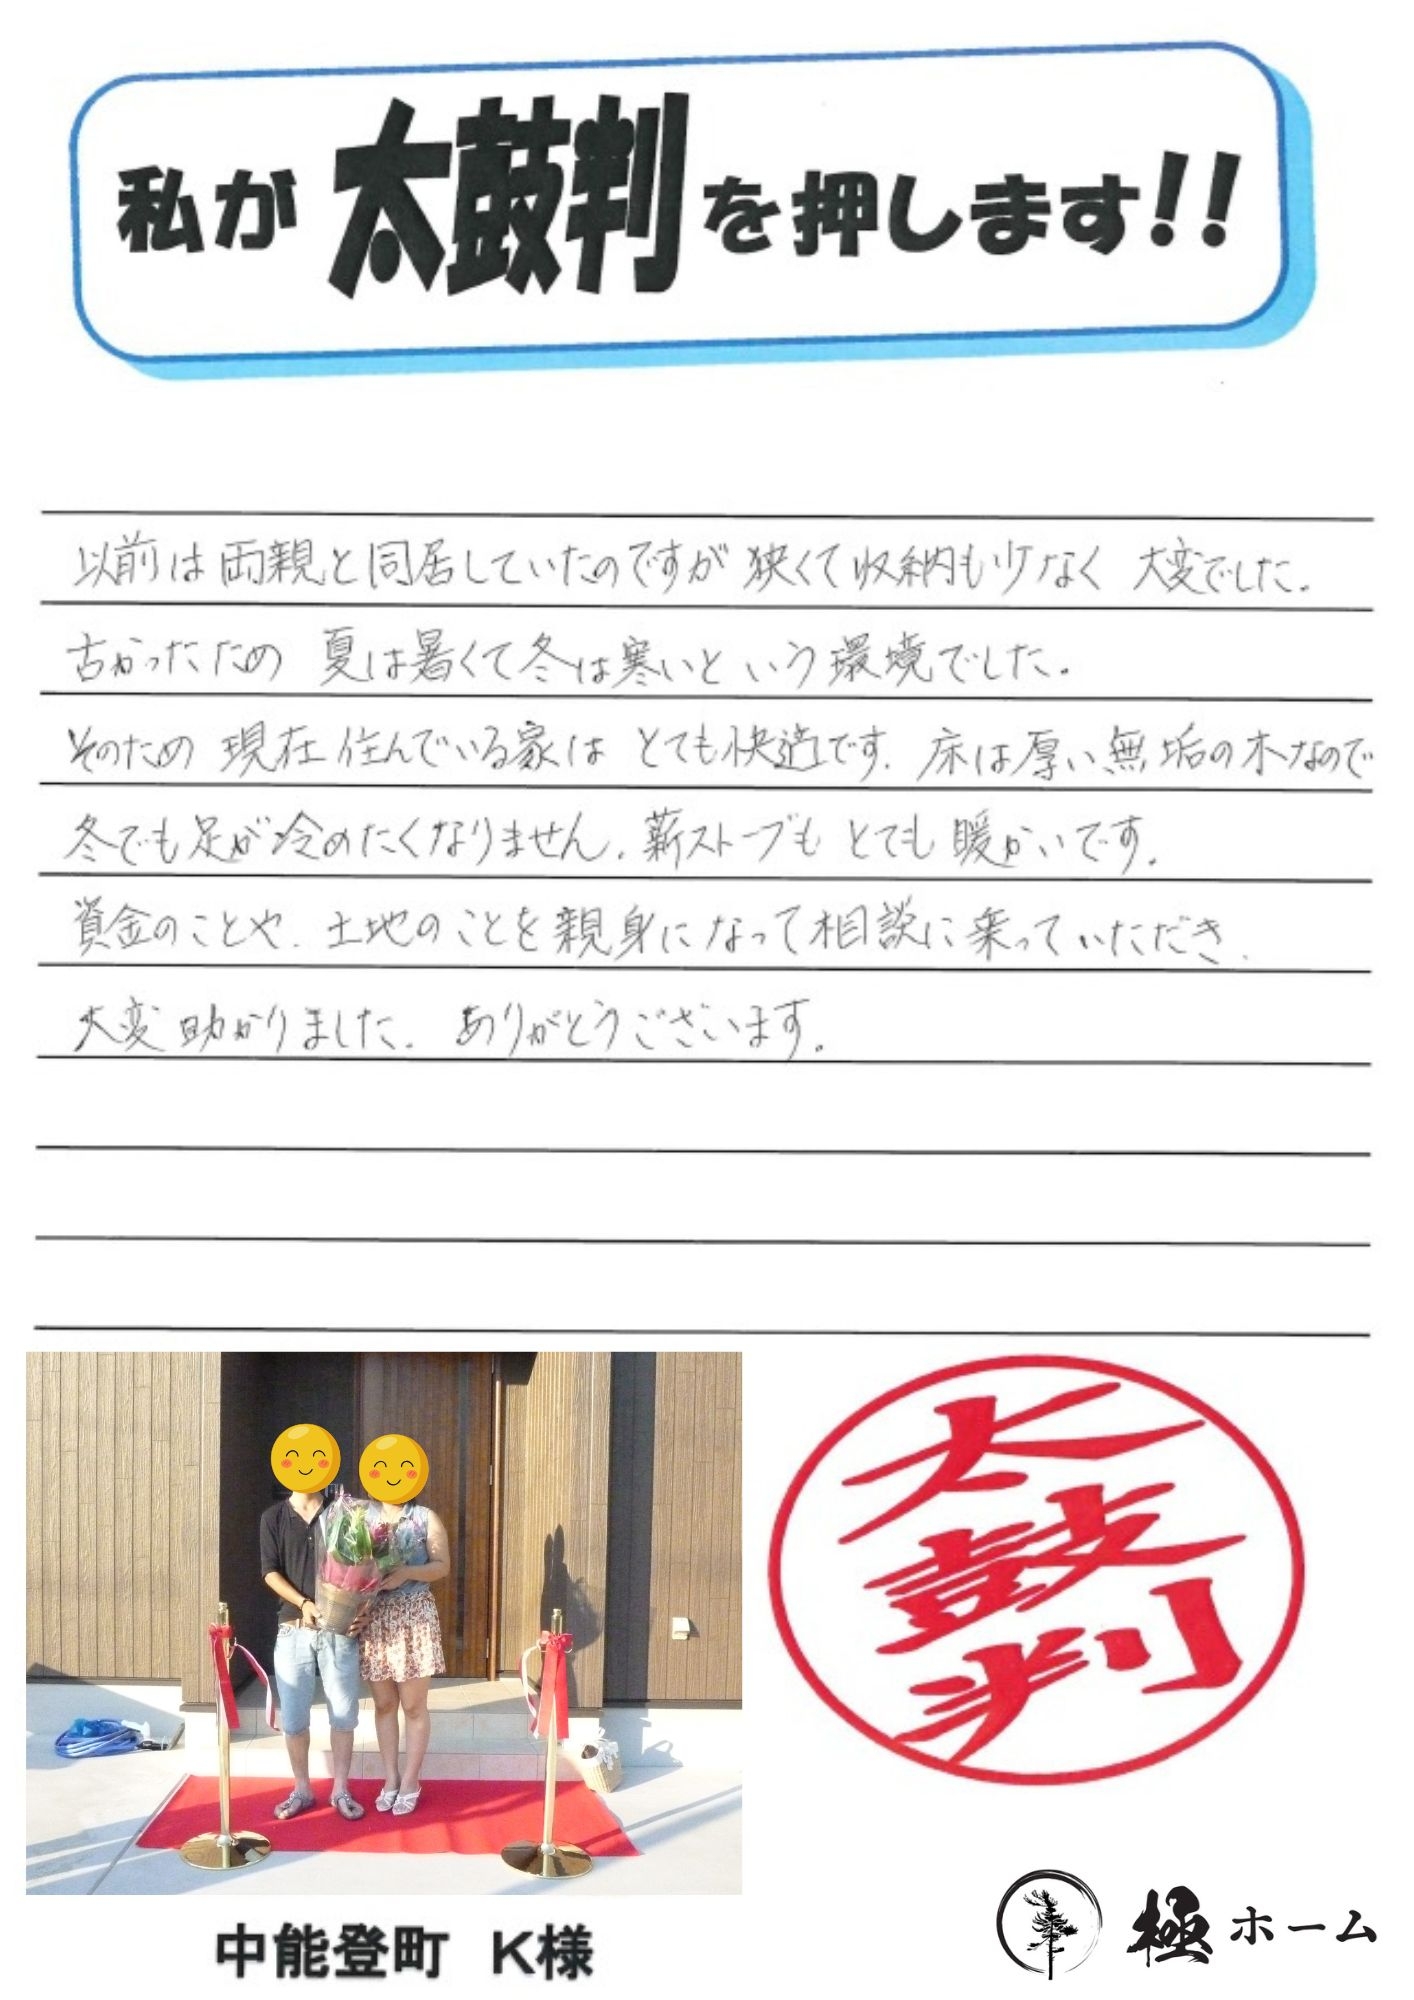 私が太鼓判を押します!!
以前は両親と同居していたのですが 狭くて収納も少なく 大変でした。
古かったため 夏は暑くて冬は寒いという環境でした。
そのため 現在住んでいる家は とても快適です。床は厚い無垢の木なので
冬でも足が冷めたくなりません。薪ストーブも とても暖かいです。
資金のことや、土地のことを親身になって相談に乗っていただき、
大変助かりました。 ありがとうございます。
太鼓判
中能登町 K様
極ホーム